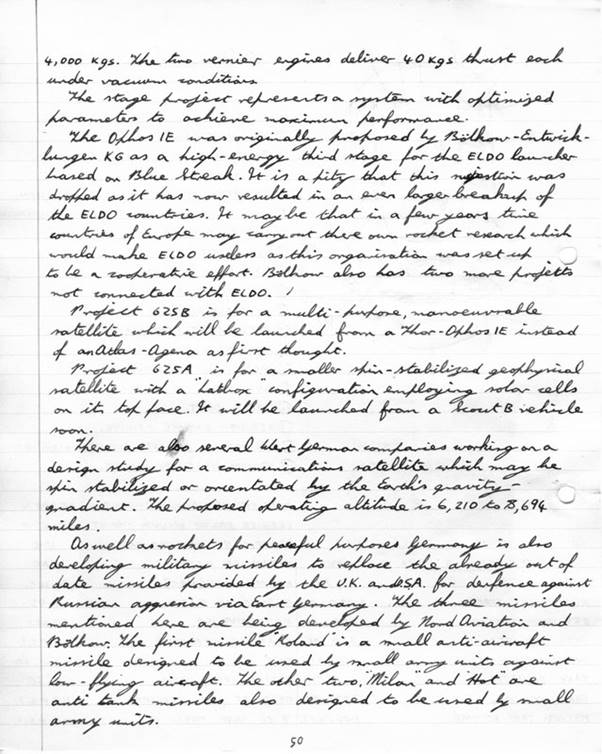 4,000 Kgs. The two vernier engines deliver 40 Kgs thrust each
under vacuum conditions
The stage project represents a system with optimized
parameters to achieve maximum performance.
The Ophos IE was originally proposed by Bölkow-Entwick-
lungen KG as a high-energy third stage for the ELDO launcher
based on Blue Streak. It is a pity that this sugjestion was
dropped as it has now resulted in an even larger breakup of
the ELDO countries. It may be that in a few years time
countries of Europe may carry out there own rocket research which
would make ELDO useless as this organisation was set up
to be a cooperative effort. Bölkow also has two more projects
not connected with ELDO.
Project 625B is for a multi-purpose, manoeuvrable
satellite which will be launched from a Thor-Ophos IE instead
of an Atlas-Agena as first thought.
Project 625A is for a smaller spin-stabilized geophysical
satellite with a "hatbox" configuration employing solar cells
on its top face. It will be launched from a Scout B vehicle
soon.
There are also several West German companies working on a
design study for a communications satellite which may be
spin stabilized or orientated by the Earth's gravity-
gradient. The proposed operating altitude is 6,210 to 8,694
miles.
As well as rockets for peaceful purposes Germany is also
developing military missiles to replace the already out of
date missiles provided by the U.K. and USA. for defence against
Russian aggresion via East Germany. The three missiles
mentioned here are being developed by Nord Aviation and
Bölkow. The first missile "Roland" is a small anti-aircraft
missile designed to be used by small army units against
low-flying aircraft. The other two, "Milan" and "Hot" are
anti tank missiles also designed to be used by small
army units.
50